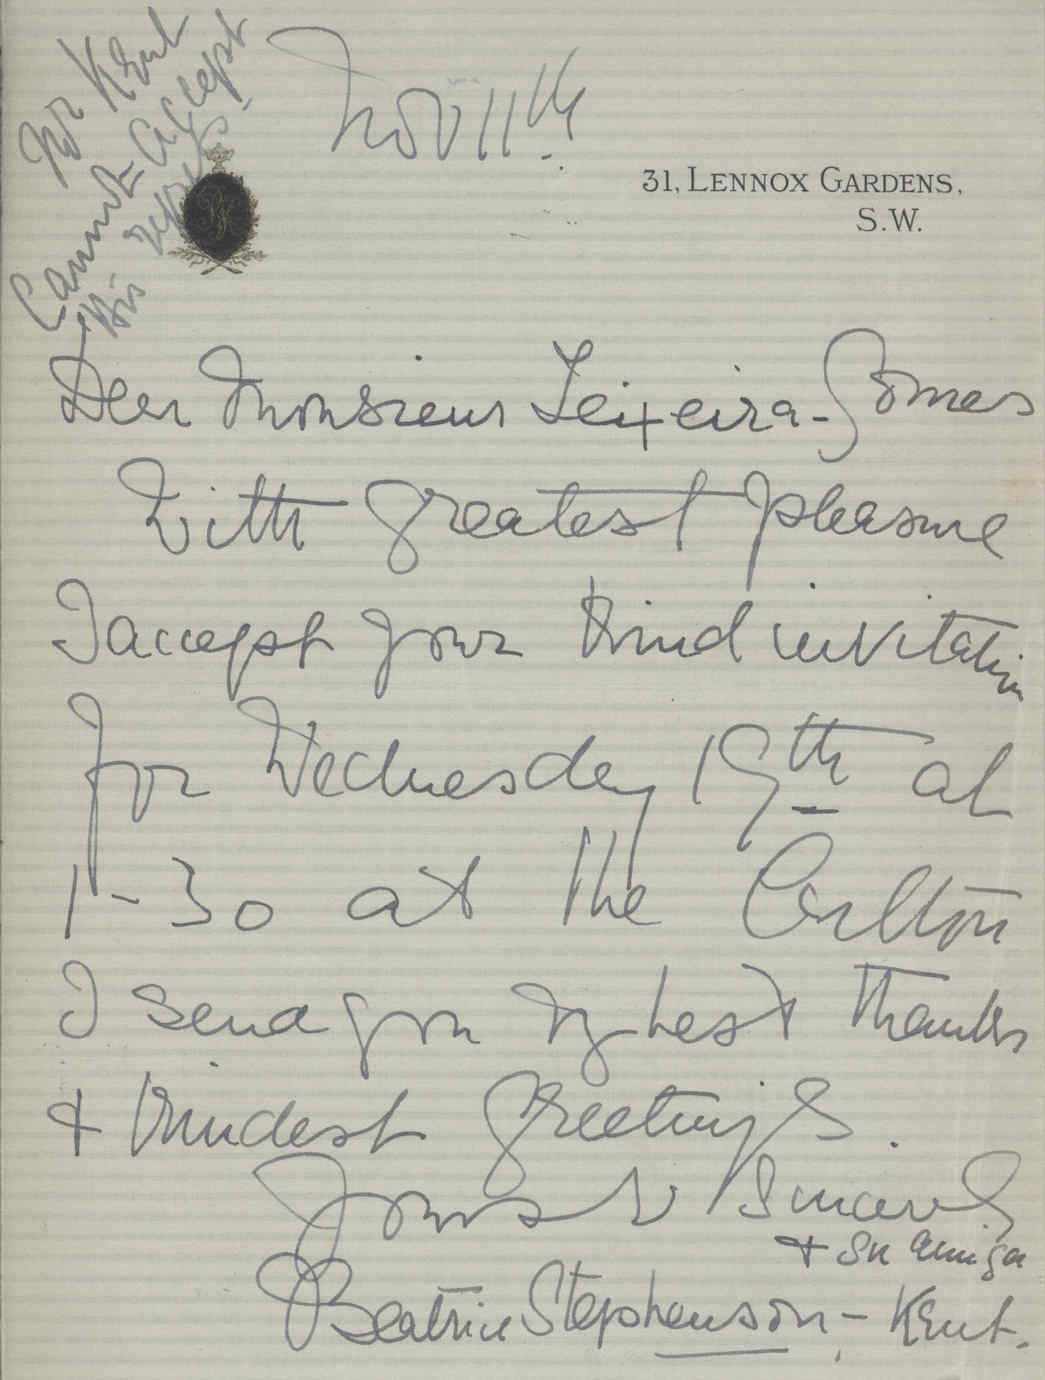 Mr Kent
Cannot accept
His regrets
Nov 11th
31, LENNOX GARDENS,
S.W.
Dear Monsieur Teixeira-Gomes
With greatest pleasure
I accept your kind invitation
for Wednesday 19th at
1-30 at the Carlton
I send you my best thanks
& kindest greetings.
Yours v sincerely
& su amiga
Beatrice Stephenson-Kent.